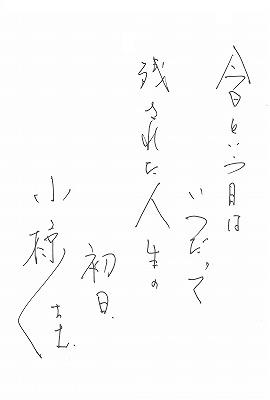 今日という日は
いつだって
残された人生の
初日
小椋佳